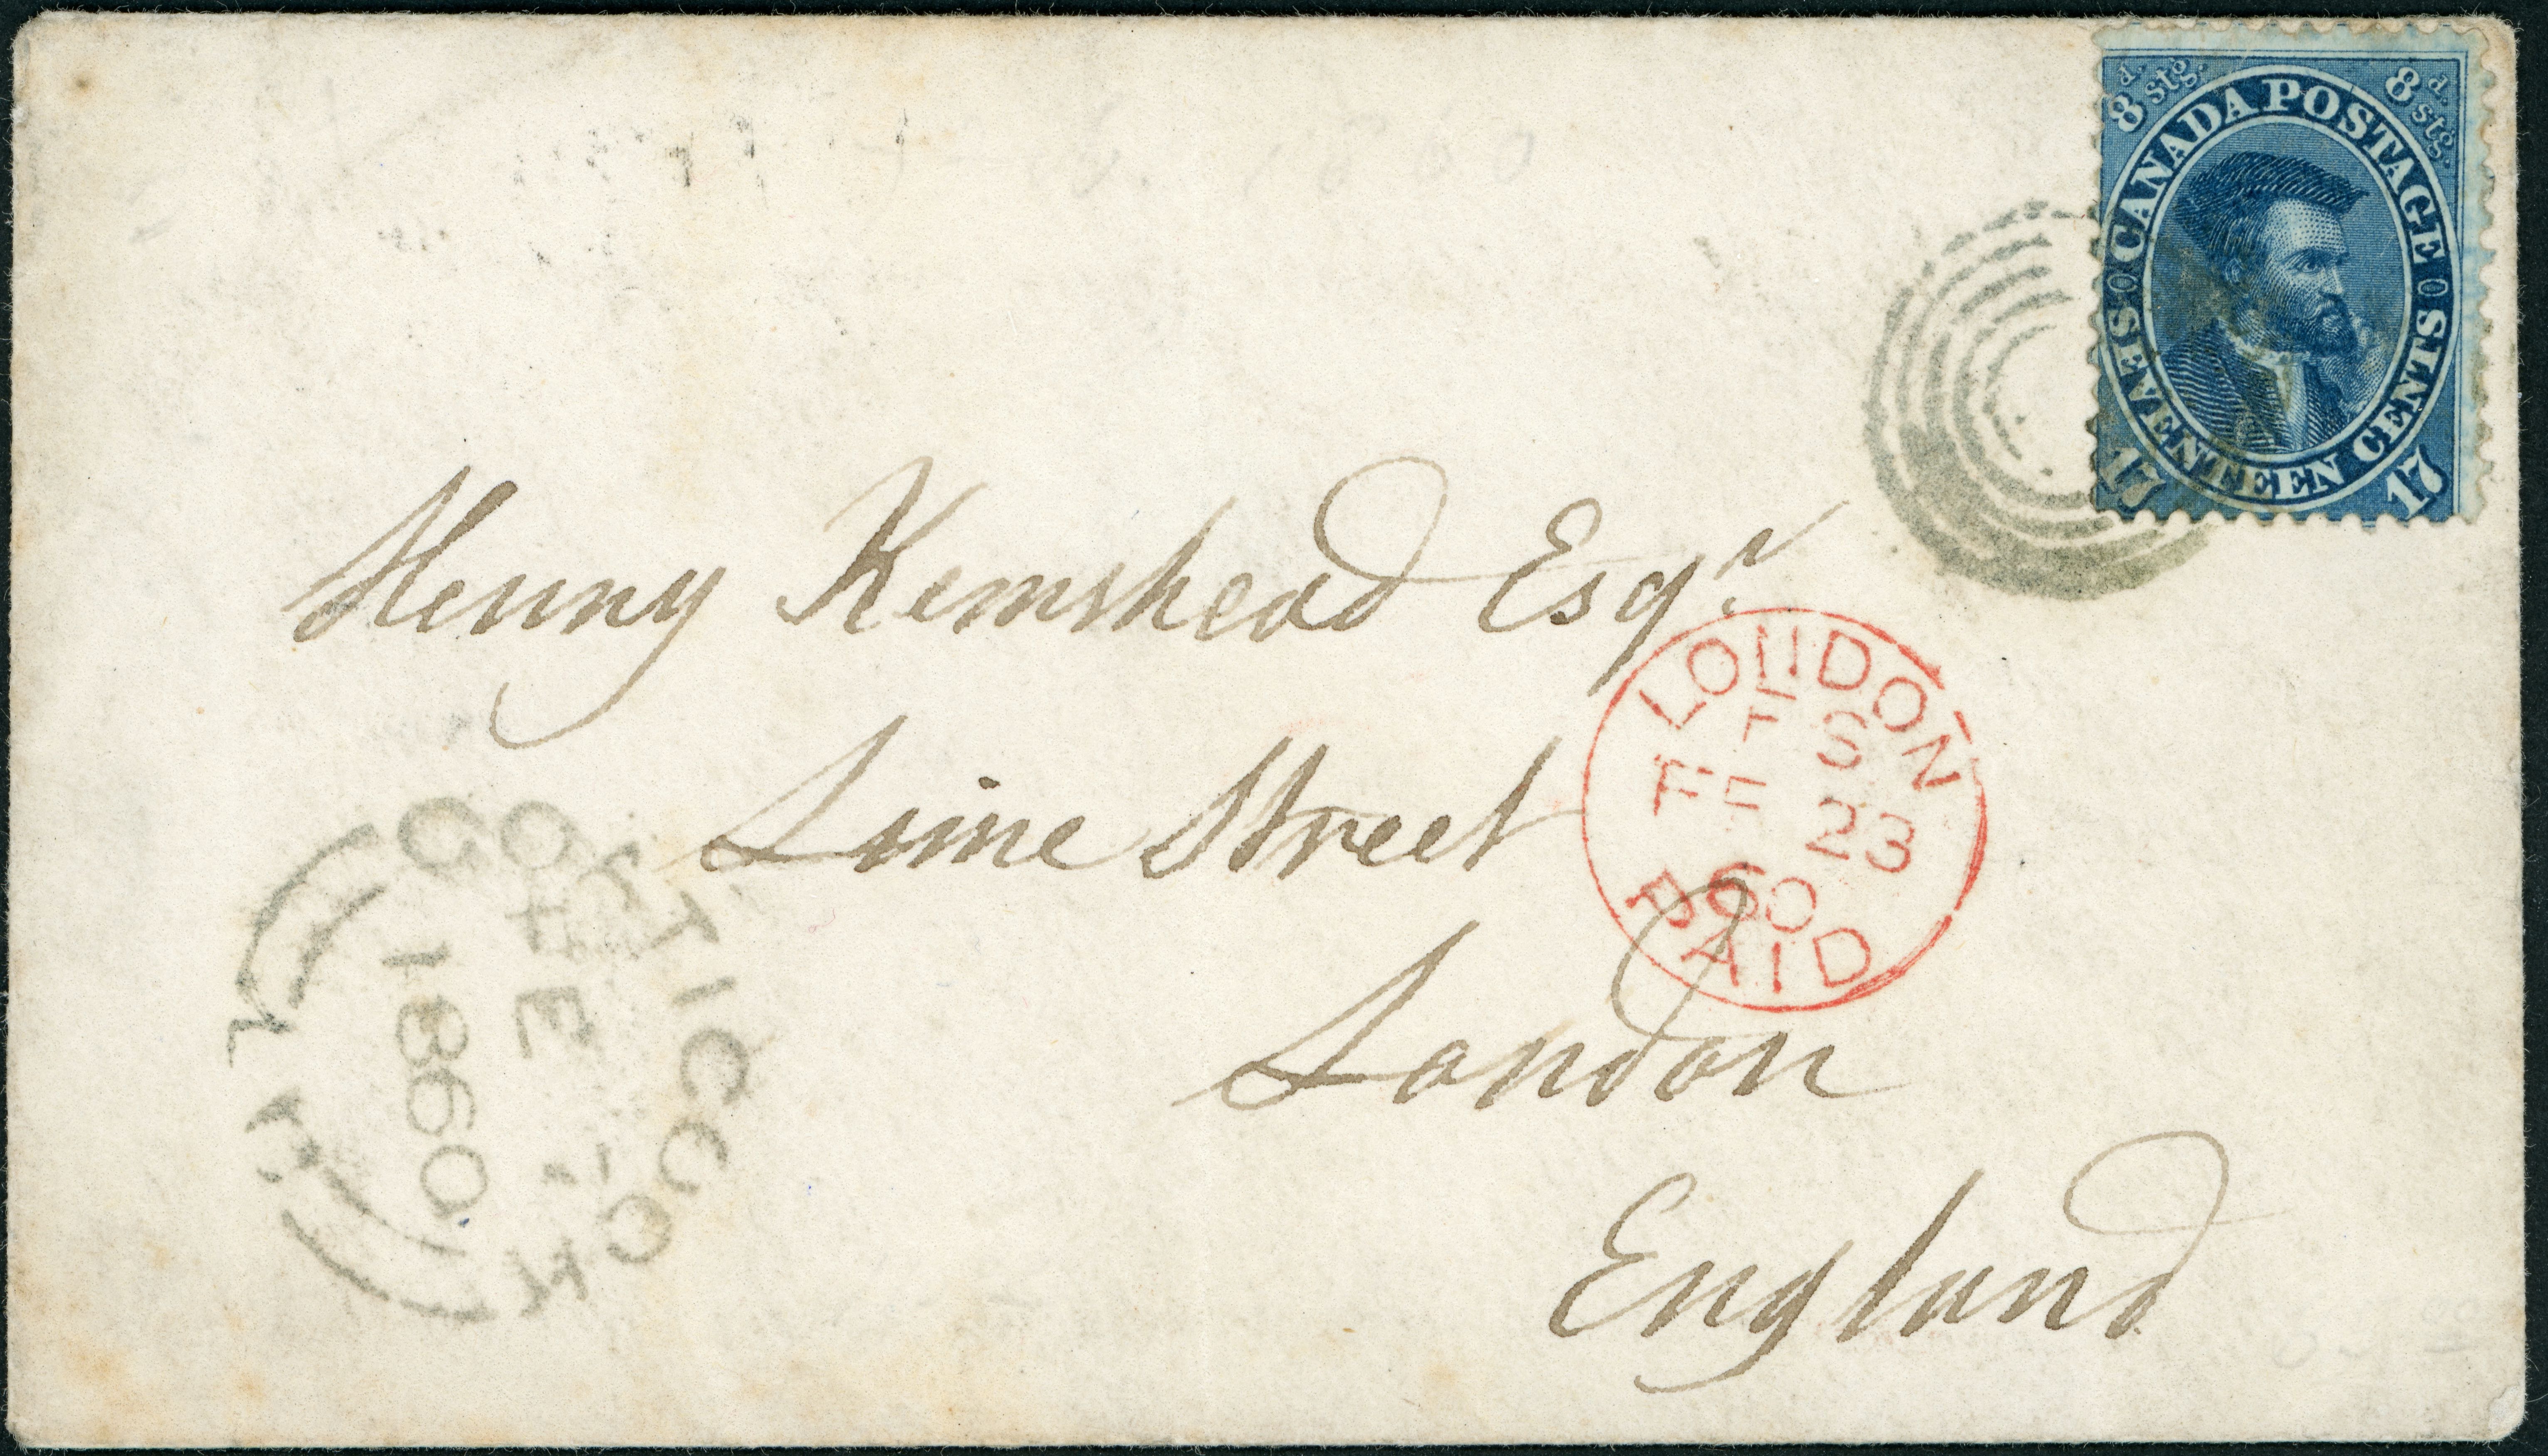 8d. stg. 8d. stg.
CANADA POSTAGE
SEVENTEEN CENTS
17 17
Henny Kemshead Esqr.
Lime Street
London
England
LONDON
FS
FE 23
60
PAID
COTICOOK
FE
1860